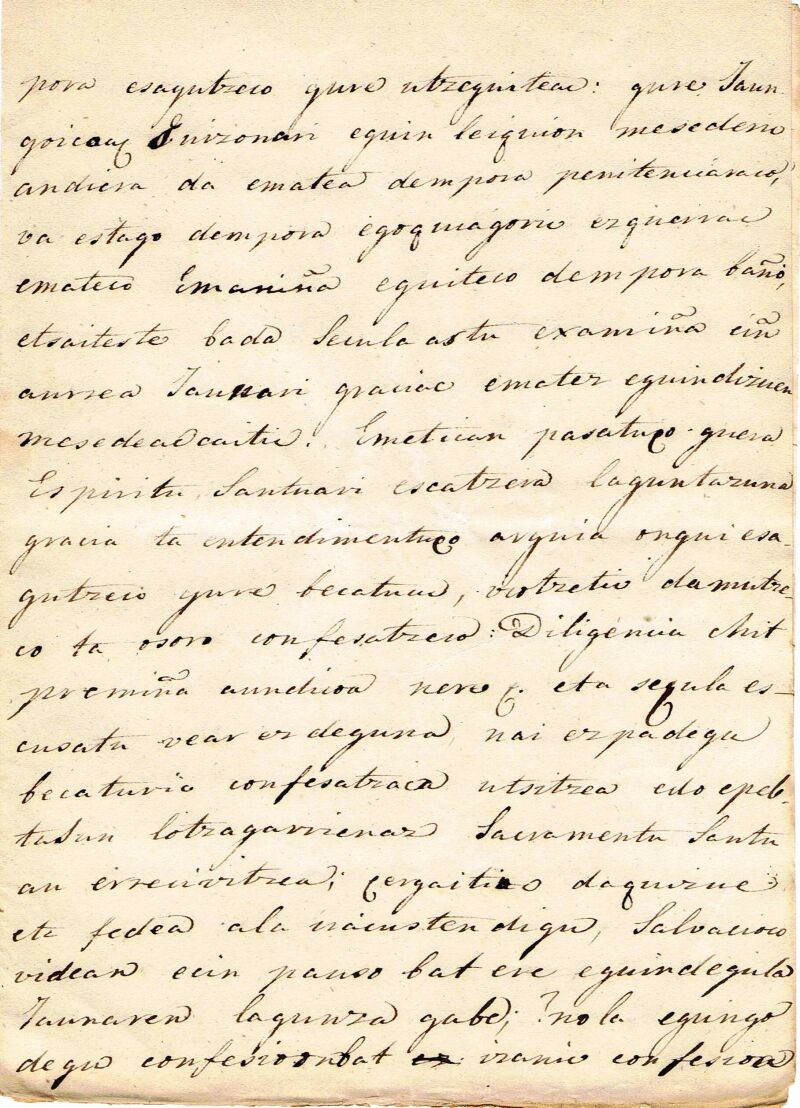 pora esagutzeco gure utzeguiteac: gure Jaun-
goicoaç Guizonari eguin leiquion mesederic
andiera da ematea dempora penitenciaraco,
va estago dempora egoquiagoric ezquerrac
emateco Emaniña eguiteco dempora baño,
etsaiteste bada Secula astu examiña eiñ
aurrea Jaunari graciac ematez eguindizuen
mesedeac caitic. Emetican pasatuço guera
Espiritu Santuari escatzera laguntazuna
gracia ta entendimentuço arguia ongui esa-
gutzeco gure becatuac, viotzetic damutze-
co ta osoro confesatzeco: Diligencia chit
premiña aundicoa nere ç. eta seçula es-
cusatu vear ez deguna, nai ezpadegu
becaturic confesatzaca utsitzea edo epel-
tasun lotzagarrienaz Sacramentu Santu
au errecivitzea; çergaitic daquizue
eta fedea ala iracusten digu, Salvacioco
videan ecin pauso bat ere eguindegula
Jaunaren lagunza gabe; ?nola eguingo
degu confesioonbat izanic confesioa